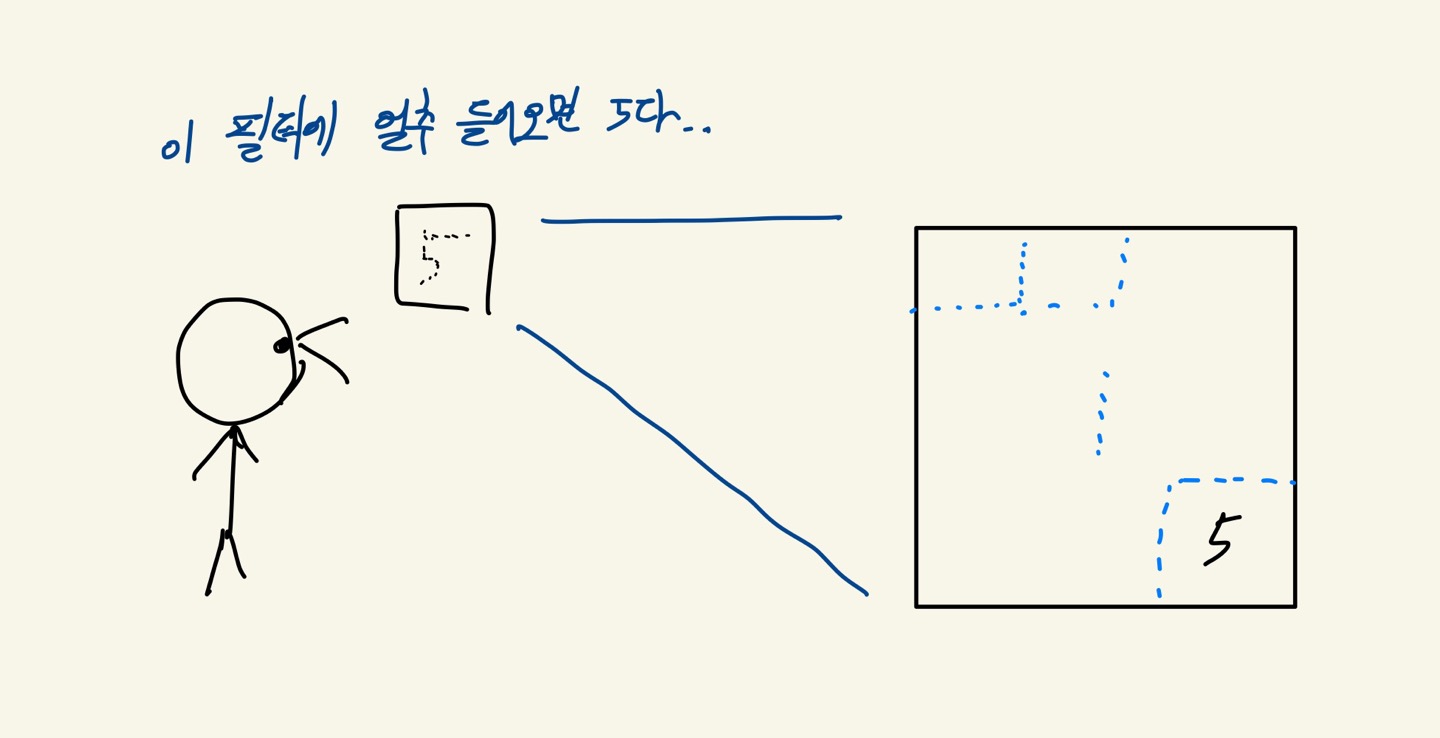 이 필터에 얼추 들어오면 5다..
5
5